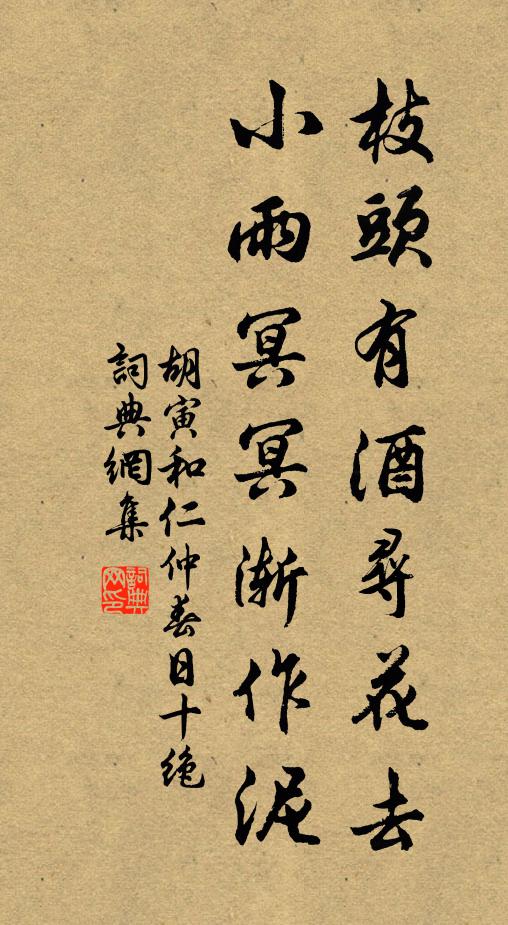 枝頭有酒尋花去
小雨冥冥漸作泥
胡寅和仁仲春日十絕
詞典網集
詞典网印